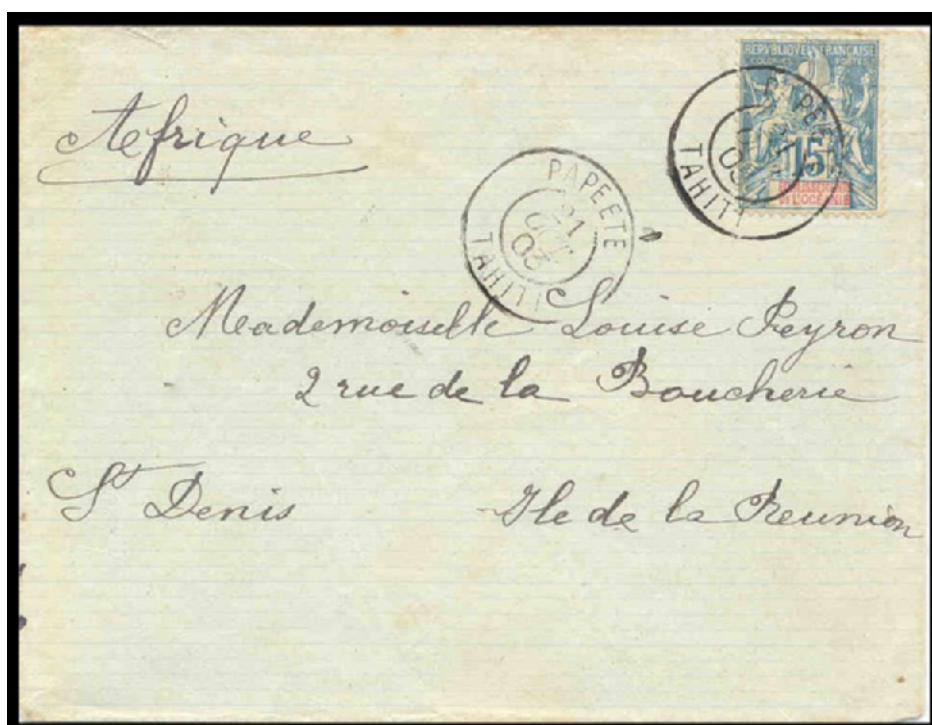 REPUBLIQUE FRANÇAISE
COLONIES POSTES
15
ETABLISSEMENTS
DE L'OCÉANIE
PAPEETE
TAHITI
Afrique
PAPEETE
21
OCT
03
TAHITI
Mademoiselle Louise Peyron
2 rue de la Boucherie
St Denis Ile de la Reunion